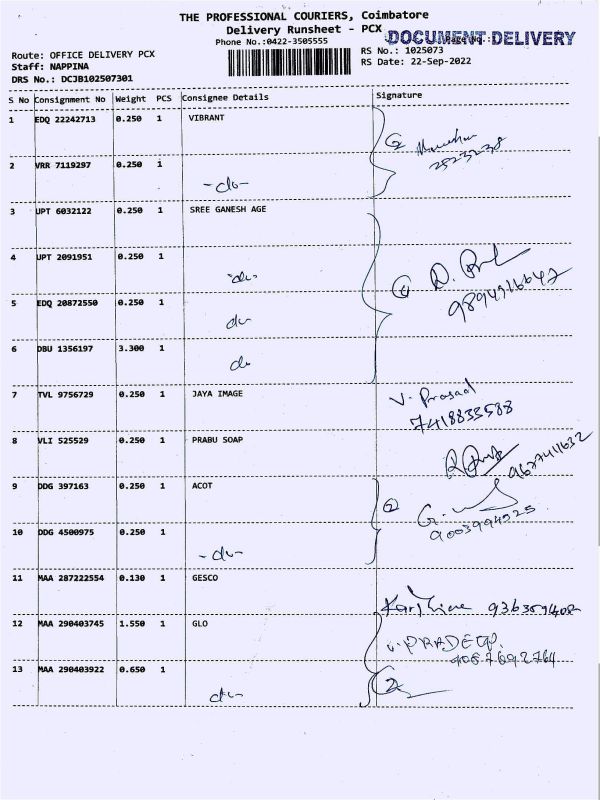 THE PROFESSIONAL COURIERS, Coimbatore
Delivery Runsheet - PCX
DOCUMENT DELIVERY
Phone No.:0422-3505555
Page No.:
Route: OFFICE DELIVERY PCX
RS No.: 1025073
Staff: NAPPINA
RS Date: 22-Sep-2022
DRS No.: DCJB102507301
S No Consignment No Weight PCS Consignee Details Signature
1 EDQ 22242713 0.250 1 VIBRANT
2 VRR 7119297 0.250 1
-do-
3 UPT 6032122 0.250 1 SREE GANESH AGE
4 UPT 2091951 0.250 1
-do-
5 EDQ 20872550 0.250 1
do
6 DBU 1356197 3.300 1
do
7 TVL 9756729 0.250 1 JAYA IMAGE V. Prasad
7418833588
8 VLI 525529 0.250 1 PRABU SOAP
9677411632
9 DDG 397163 0.250 1 ACOT
9003994525
10 DDG 4500975 0.250 1
-do-
11 MAA 287222554 0.130 1 GESCO
12 MAA 290403745 1.550 1 GLO
V. PRADEEP.
9087692764
13 MAA 290403922 0.650 1
do
2